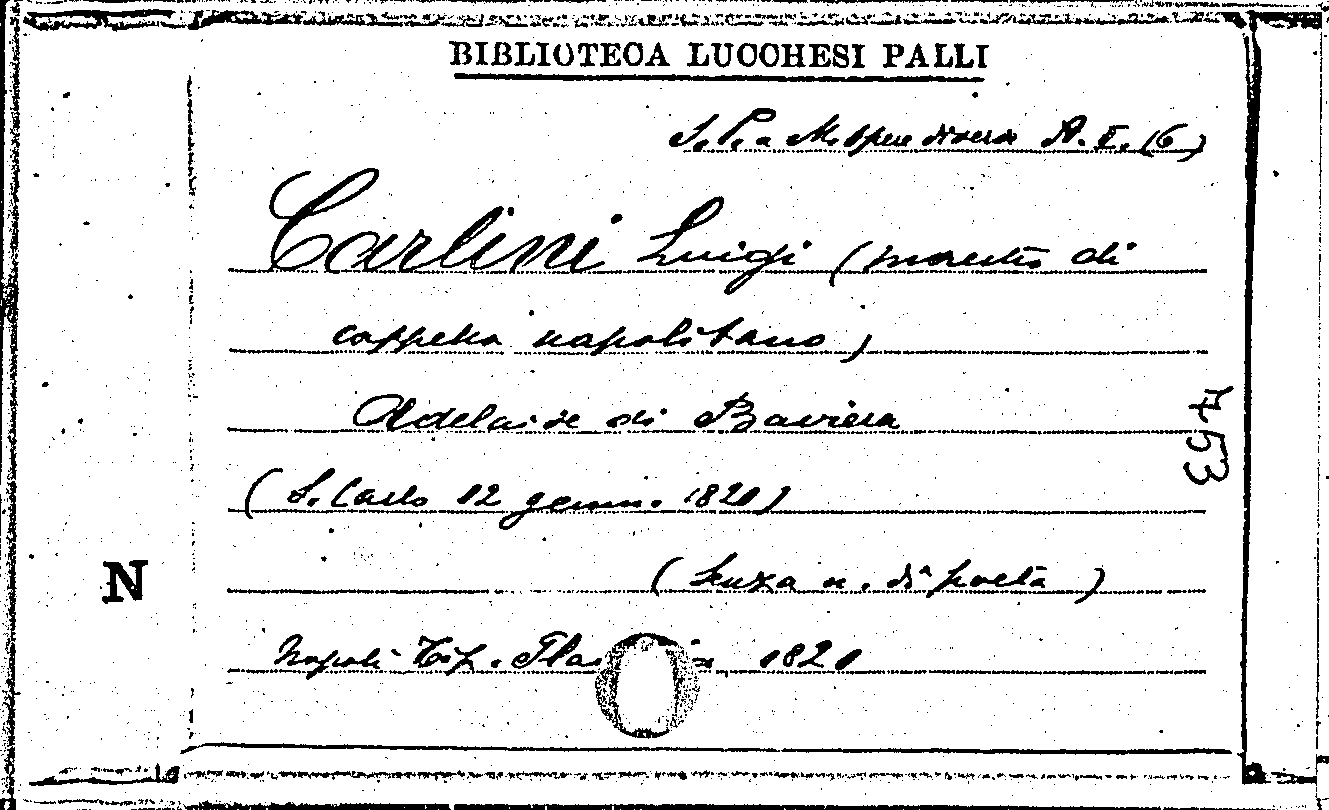 BIBLIOTECA LUCCHESI PALLI
S.P.a M. Opere diverse A. I. (6)
Carlini Luigi (maestro di
cappella napolitano)
Adelaide di Baviera
(S. Carlo 12 genn. 1821)
(senza n. di poeta)
Napoli Tip. 1821
7453
N